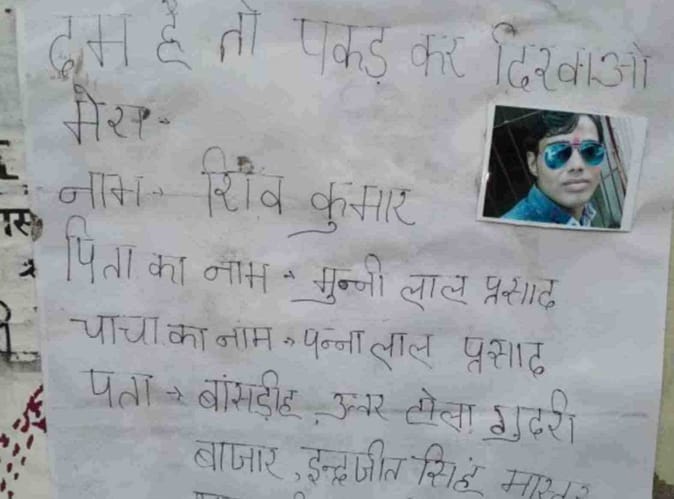 दम है तो पकड़ कर दिखाओ
मेरा-
नाम- शिव कुमार
पिता का नाम - मुन्नी लाल प्रसाद
चाचा का नाम → पन्ना लाल प्रसाद
पता → बांसडीह, उत्तर टोला गुदरी
बाजार, इन्द्रजीत सिंह मास्टर